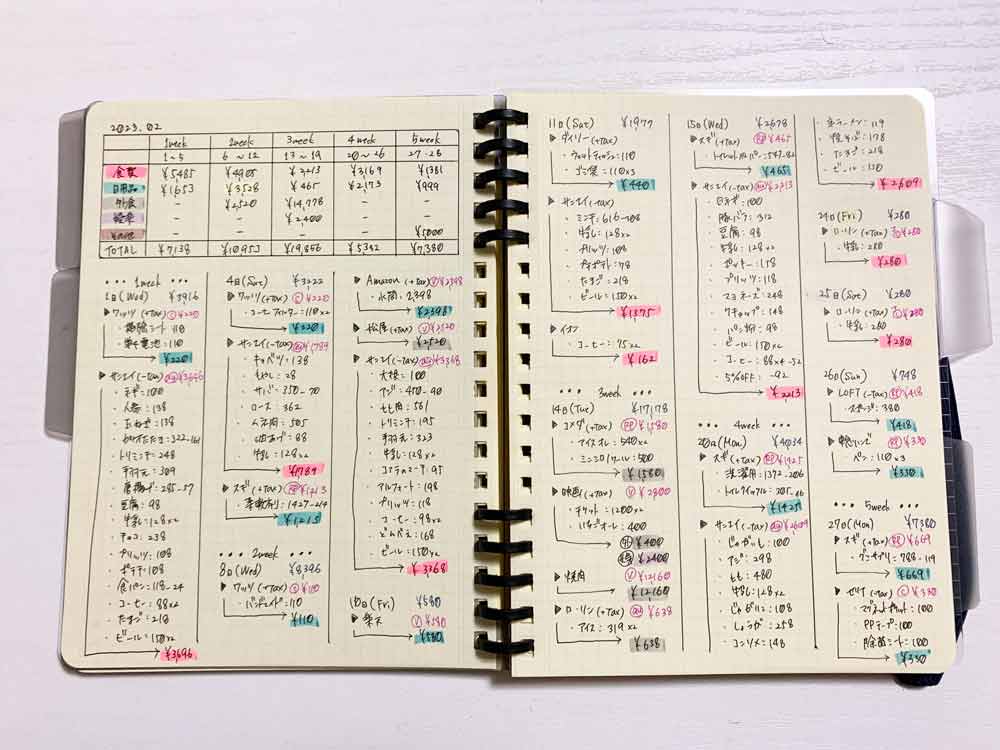 2023.02
1week 2week 3week 4week 5week
1~5 6~12 13~19 20~26 27-28
食費 ¥5,485 ¥4,905 ¥2,213 ¥3,169 ¥1,381
日用品 ¥1,653 ¥3,528 ¥465 ¥2,173 ¥999
外食 - ¥2,520 ¥14,778 - -
- - ¥2,400 - -
- - - - ¥5,000
TOTAL ¥7,138 ¥10,953 ¥19,856 ¥5,342 ¥7,380
••• 1week •••
1日(Wed) ¥3,916
▶ワッツ(+tax) ¥220
・掃除シート 110
・乾電池:110
¥220
▶サンエイ(-tax) ¥3,696
・ネギ:100
・人参:138
・玉ねぎ:138
・322-161
・トリミンチ:248
・手羽元:309
・唐揚げ:285-57
・豆腐:98
・牛乳:128×2
・チョコ:238
・プリッツ:108
・ポテチ:108
・食パン:118-24
・コーヒー:88×2
・たまご:218
・ビール:150×2
¥3,696
4日(Sat) ¥3,222
▶ワッツ(+tax) ¥220
・コーヒーフィルター:110×2
¥220
▶サンエイ(-tax) ¥1,789
・キャベツ:138
・もやし:28
・サバ:350-70
・ロース:362
・ムネ肉:505
・油あげ:88
・牛乳:128×2
¥1,789
▶スギ(+tax) ¥1,213
・柔軟剤:1427-214
¥1,213
••• 2week •••
8日(Wed) ¥8,396
▶ワッツ(+tax) ¥110
・バンドエイド:110
¥110
▶Amazon(+tax) ¥2,398
・水筒:2,398
¥2,398
▶松屋(+tax) ¥2,520
¥2,520
▶サンエイ(-tax) ¥3,368
・大根:100
・アジ:450-90
・もも肉:561
・トリミンチ:195
・手羽元:323
・牛乳:128×2
・95
・アルフォート:198
・プリッツ:118
・コーヒー:98×2
・どんべえ:168
・ビール:150×2
¥3,368
10日(Fri) ¥580
▶楽天 ¥580
¥580
11日(Sat) ¥1,977
▶ダイソー(+tax)
・ウェットティッシュ:110
・ゴミ袋:110×3
¥440
▶サンエイ(-tax)
・ミンチ:616-108
・牛乳:128×2
・プリッツ:108
・78
・たまご:218
・ビール:150×2
¥1,375
▶イオン
・コーヒー:75×2
¥162
••• 3week •••
14日(Tue) ¥17,178
▶コメダ(+tax) ¥1,580
・アイスオレ:540×2
・ミニシロノワール:500
¥1,580
▶映画(+tax) ¥2,800
・チケット:1200×2
・400
¥400
¥2,400
▶焼肉 ¥12,160
¥12,160
▶ローソン(+tax) ¥638
・アイス:319×2
¥638
15日(Wed) ¥2,678
▶スギ(+tax) ¥465
・547-82
¥465
▶サンエイ(-tax) ¥2,213
・白ネギ:100
・豚バラ:312
・豆腐:98
・牛乳:128×2
・ポッキー:118
・プリッツ:118
・マヨネーズ:248
・ケチャップ:148
・98
・ビール:150×2
・コーヒー:88×4-52
・5%OFF:-92
¥2,213
••• 4week •••
20日(Mon) ¥4,034
▶スギ(+tax) ¥1,425
・洗濯用:1372-206
・トイレクイックル:
¥1,425
▶サンエイ(-tax) ¥2,609
・じゃがいも:100
・アジ:298
・もも:480
・牛乳:128×2
・じゃがりこ:108
・しょうが:258
・コンソメ:148
・ラーメン:119
・焼そば:178
・たまご:218
・ビール:150
¥2,609
24日(Fri) ¥280
▶ローソン(+tax) ¥280
・牛乳:280
¥280
25日(Sat) ¥280
▶ローソン(+tax) ¥280
・牛乳:280
¥280
26日(Sun) ¥748
▶LOFT(-tax) ¥418
・スポンジ:380
¥418
¥330
・ペン:110×3
¥330
••• 5week •••
27日(Mon) ¥7,380
▶スギ(+tax) ¥669
・788-119
¥669
▶セリア(+tax) ¥330
・100
・PPテープ:100
・除菌シート:100
¥330